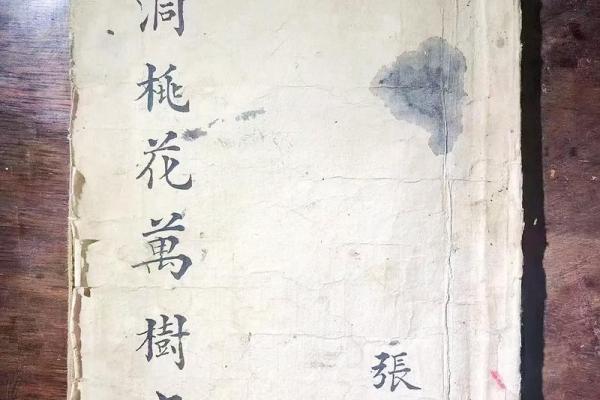 洞桃花萬樹
張